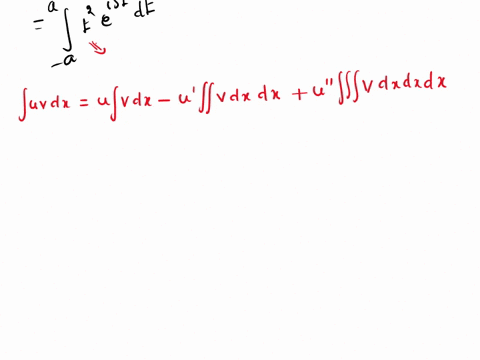 = ∫_{-a}^{a} t² e^{ist} dt
∫uvdx = u∫vdx − u'∬vdx dx + u''∭vdxdxdx